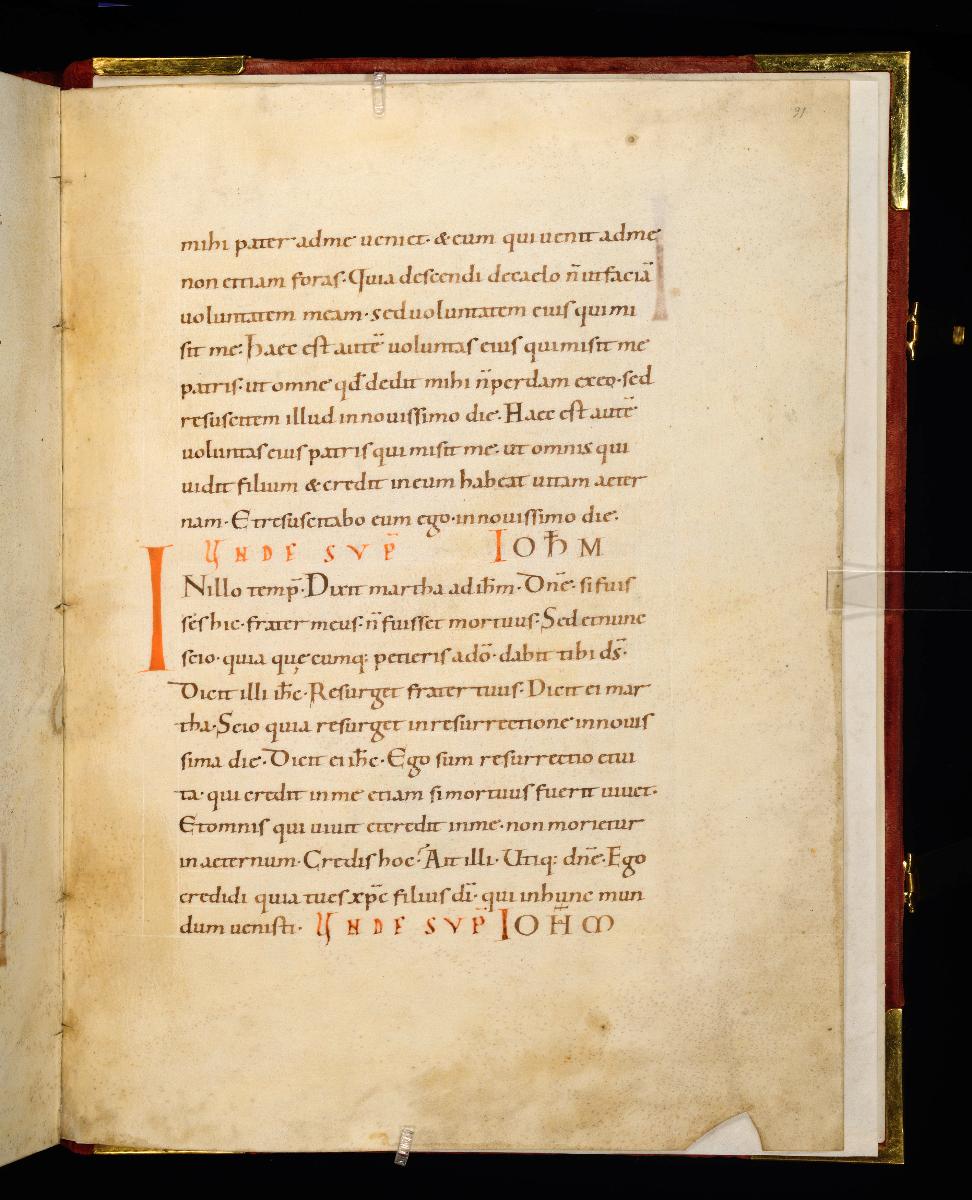 91
mihi pater adme ueniet· & eum qui uenit adme
non eiciam foras· Quia descendi decaelo n̄ ut faciā
uoluntatem meam· sed uoluntatem eius qui mi
sit me· Haec est autē uoluntas eius qui misit me
patris· ut omne qd̄ dedit mihi n̄ perdam exeo· sed
resuscitem illud innouissimo die· Haec est autē
uoluntas eius patris qui misit me· ut omnis qui
uidit filium & credit ineum habeat uitam aeter
nam· Et resuscitabo eum ego· innouissimo die·
UNDE SVP̄ IOH̄M
INillo temp̄· Dixit martha ad ihm̄· Dn̄e· si fuis
ses hic· frater meus· n̄ fuisset mortuus· Sed etnunc
scio· quia quęcumq: petieris adō· dabit tibi ds̄·
Dicit illi ihc̄· Resurget frater tuus· Dicit ei mar
tha· Scio quia resurget inresurrectione innouis
sima die· Dicit ei ihc̄· Ego sum resurrectio etui
ta· qui credit inme etiam si mortuus fuerit uiuet·
Etomnis qui uiuit etcredit inme· non morietur
inaeternum· Credis hoc· Ait illi· Utiq: dn̄e· Ego
credidi quia tues xp̄c filius dī· qui inhunc mun
dum uenisti· UNDE SVP̄ IOH̄M